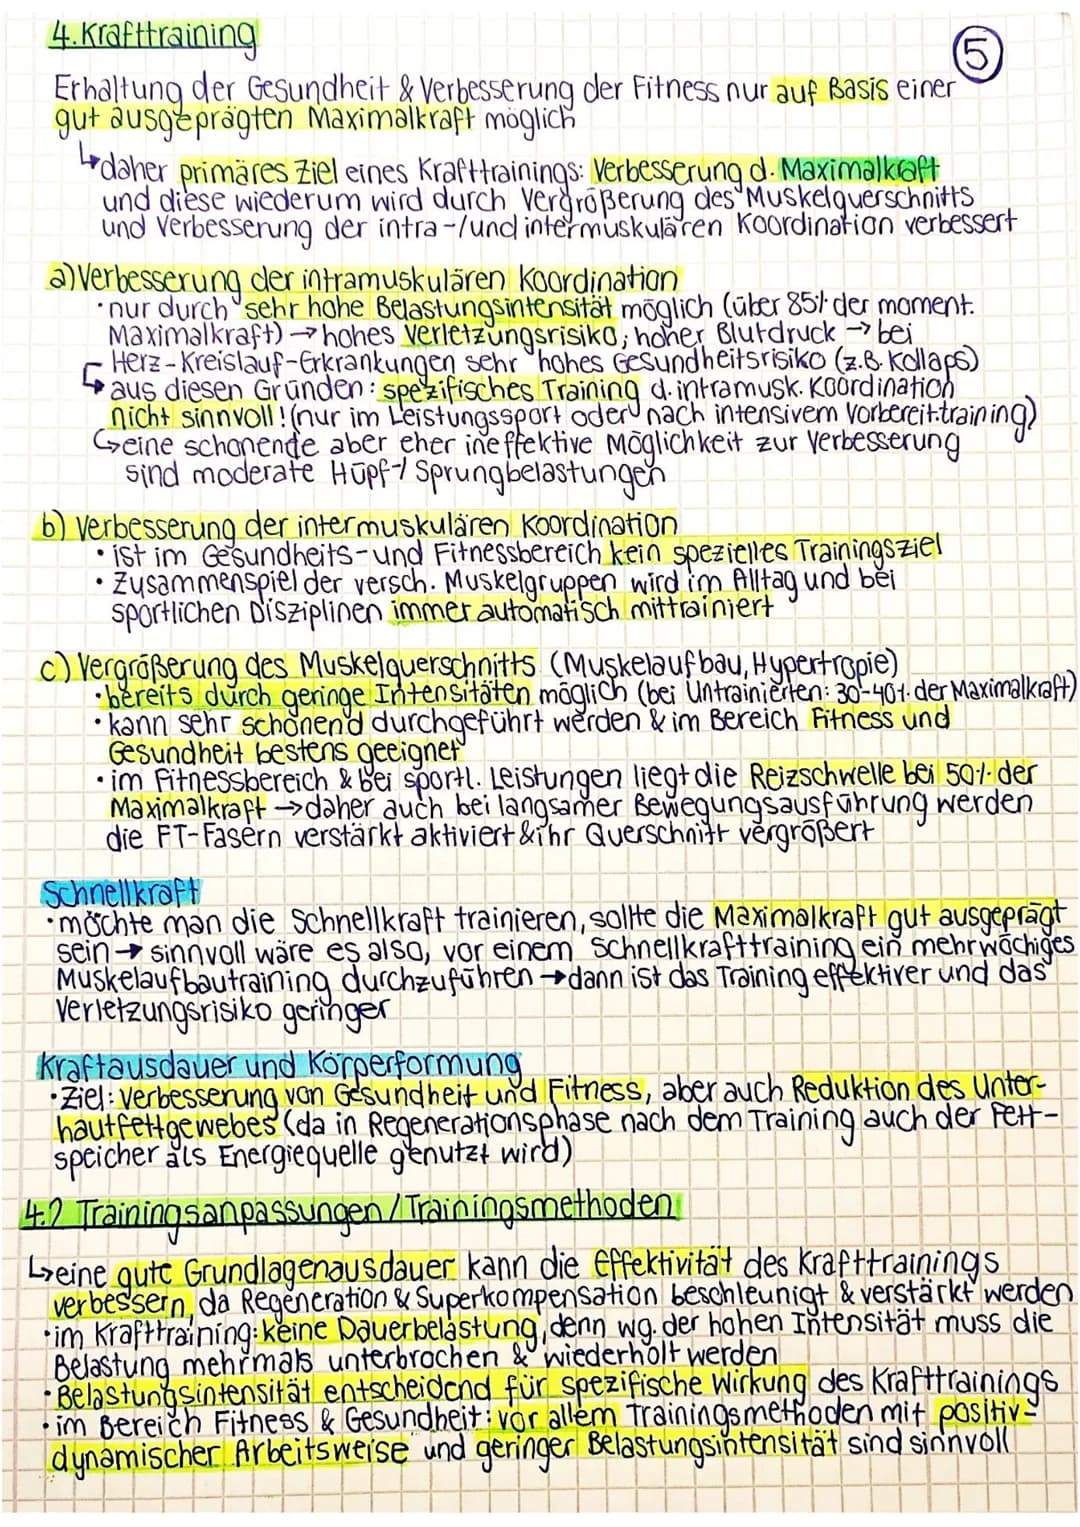 4. Krafttraining
5
Erhaltung der Gesundheit & Verbesserung der Fitness nur auf Basis einer
gut ausgeprägten Maximalkraft möglich
↳ daher primäres Ziel eines Krafttrainings: Verbesserung d. Maximalkraft
und diese wiederum wird durch Vergrößerung des Muskelquerschnitts
und Verbesserung der intra-/und intermuskulären Koordination verbessert
a) Verbesserung der intramuskulären Koordination
• nur durch sehr hohe Belastungsintensität möglich (über 85% der moment.
Maximalkraft) → hohes Verletzungsrisiko; hoher Blutdruck → bei
Herz-Kreislauf-Erkrankungen sehr hohes Gesundheitsrisiko (z.B. Kollaps)
↳ aus diesen Gründen: spezifisches Training d. intramusk. Koordination
nicht sinnvoll! (nur im Leistungssport oder nach intensivem Vorbereit.training)
↳ eine schonende aber eher ineffektive Möglichkeit zur Verbesserung
sind moderate Hüpf-/Sprungbelastungen
b) Verbesserung der intermuskulären Koordination
• ist im Gesundheits- und Fitnessbereich kein spezielles Trainingsziel
• Zusammenspiel der versch. Muskelgruppen wird im Alltag und bei
sportlichen Disziplinen immer automatisch mittrainiert
c) Vergrößerung des Muskelquerschnitts (Muskelaufbau, Hypertropie)
• bereits durch geringe Intensitäten möglich (bei Untrainierten: 30-40% der Maximalkraft)
• kann sehr schonend durchgeführt werden & im Bereich Fitness und
Gesundheit bestens geeignet
• im Fitnessbereich & bei sportl. Leistungen liegt die Reizschwelle bei 50% der
Maximalkraft → daher auch bei langsamer Bewegungsausführung werden
die FT-Fasern verstärkt aktiviert & ihr Querschnitt vergrößert
Schnellkraft
• möchte man die Schnellkraft trainieren, sollte die Maximalkraft gut ausgeprägt
sein → sinnvoll wäre es also, vor einem Schnellkrafttraining ein mehrwöchiges
Muskelaufbautraining durchzuführen → dann ist das Training effektiver und das
Verletzungsrisiko geringer
Kraftausdauer und Körperformung
• Ziel: Verbesserung von Gesundheit und Fitness, aber auch Reduktion des Unter-
hautfettgewebes (da in Regenerationsphase nach dem Training auch der Fett-
speicher als Energiequelle genutzt wird)
4.2 Trainingsanpassungen / Trainingsmethoden
↳ eine gute Grundlagenausdauer kann die Effektivität des Krafttrainings
verbessern, da Regeneration & Superkompensation beschleunigt & verstärkt werden
• im Krafttraining: keine Dauerbelastung, denn wg. der hohen Intensität muss die
Belastung mehrmals unterbrochen & wiederholt werden
• Belastungsintensität entscheidend für spezifische Wirkung des Krafttrainings
• im Bereich Fitness & Gesundheit: vor allem Trainingsmethoden mit positiv-
dynamischer Arbeitsweise und geringer Belastungsintensität sind sinnvoll